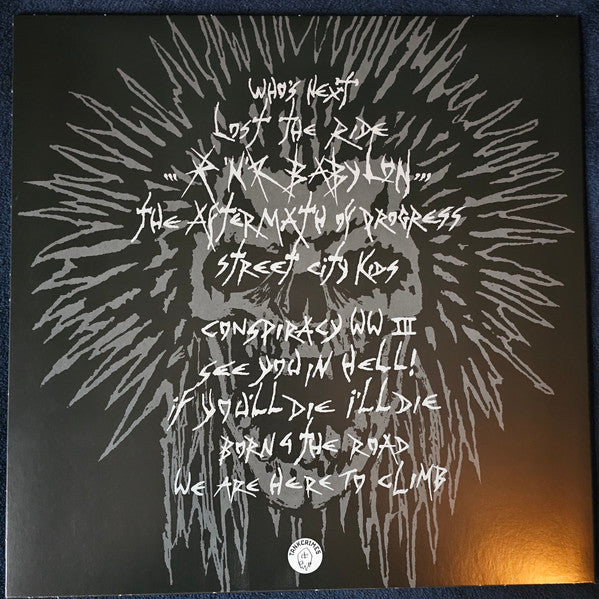 WHO'S NEXT
LOST THE RIDE
... R 'N' R BABYLON ...
THE AFTERMATH OF PROGRESS
STREET CITY KIDS
CONSPIRACY WW III
SEE YOU IN HELL!
if YOU'LL DIE I'LL DIE
BORN 4 THE ROAD
WE ARE HERE TO CLIMB
TANKCRIMES